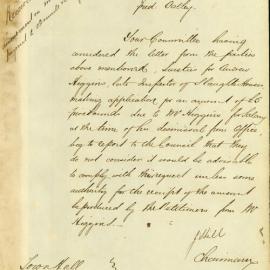 fred Oxley
Your Committee having
considered the letter from the parties
above mentioned, sureties for
Higgins, late Inspector of Slaughter Houses
making application for an amount of £5
due to Mr Higgins for Salary
at the time of his dismissal from Office,
beg to report to the Council that they
do not consider it would be advisable
to comply with this request unless some
authority for the receipt of the amount
be produced by the Petitioners from Mr
Higgins.
J Hill
Chairman
Town Hall